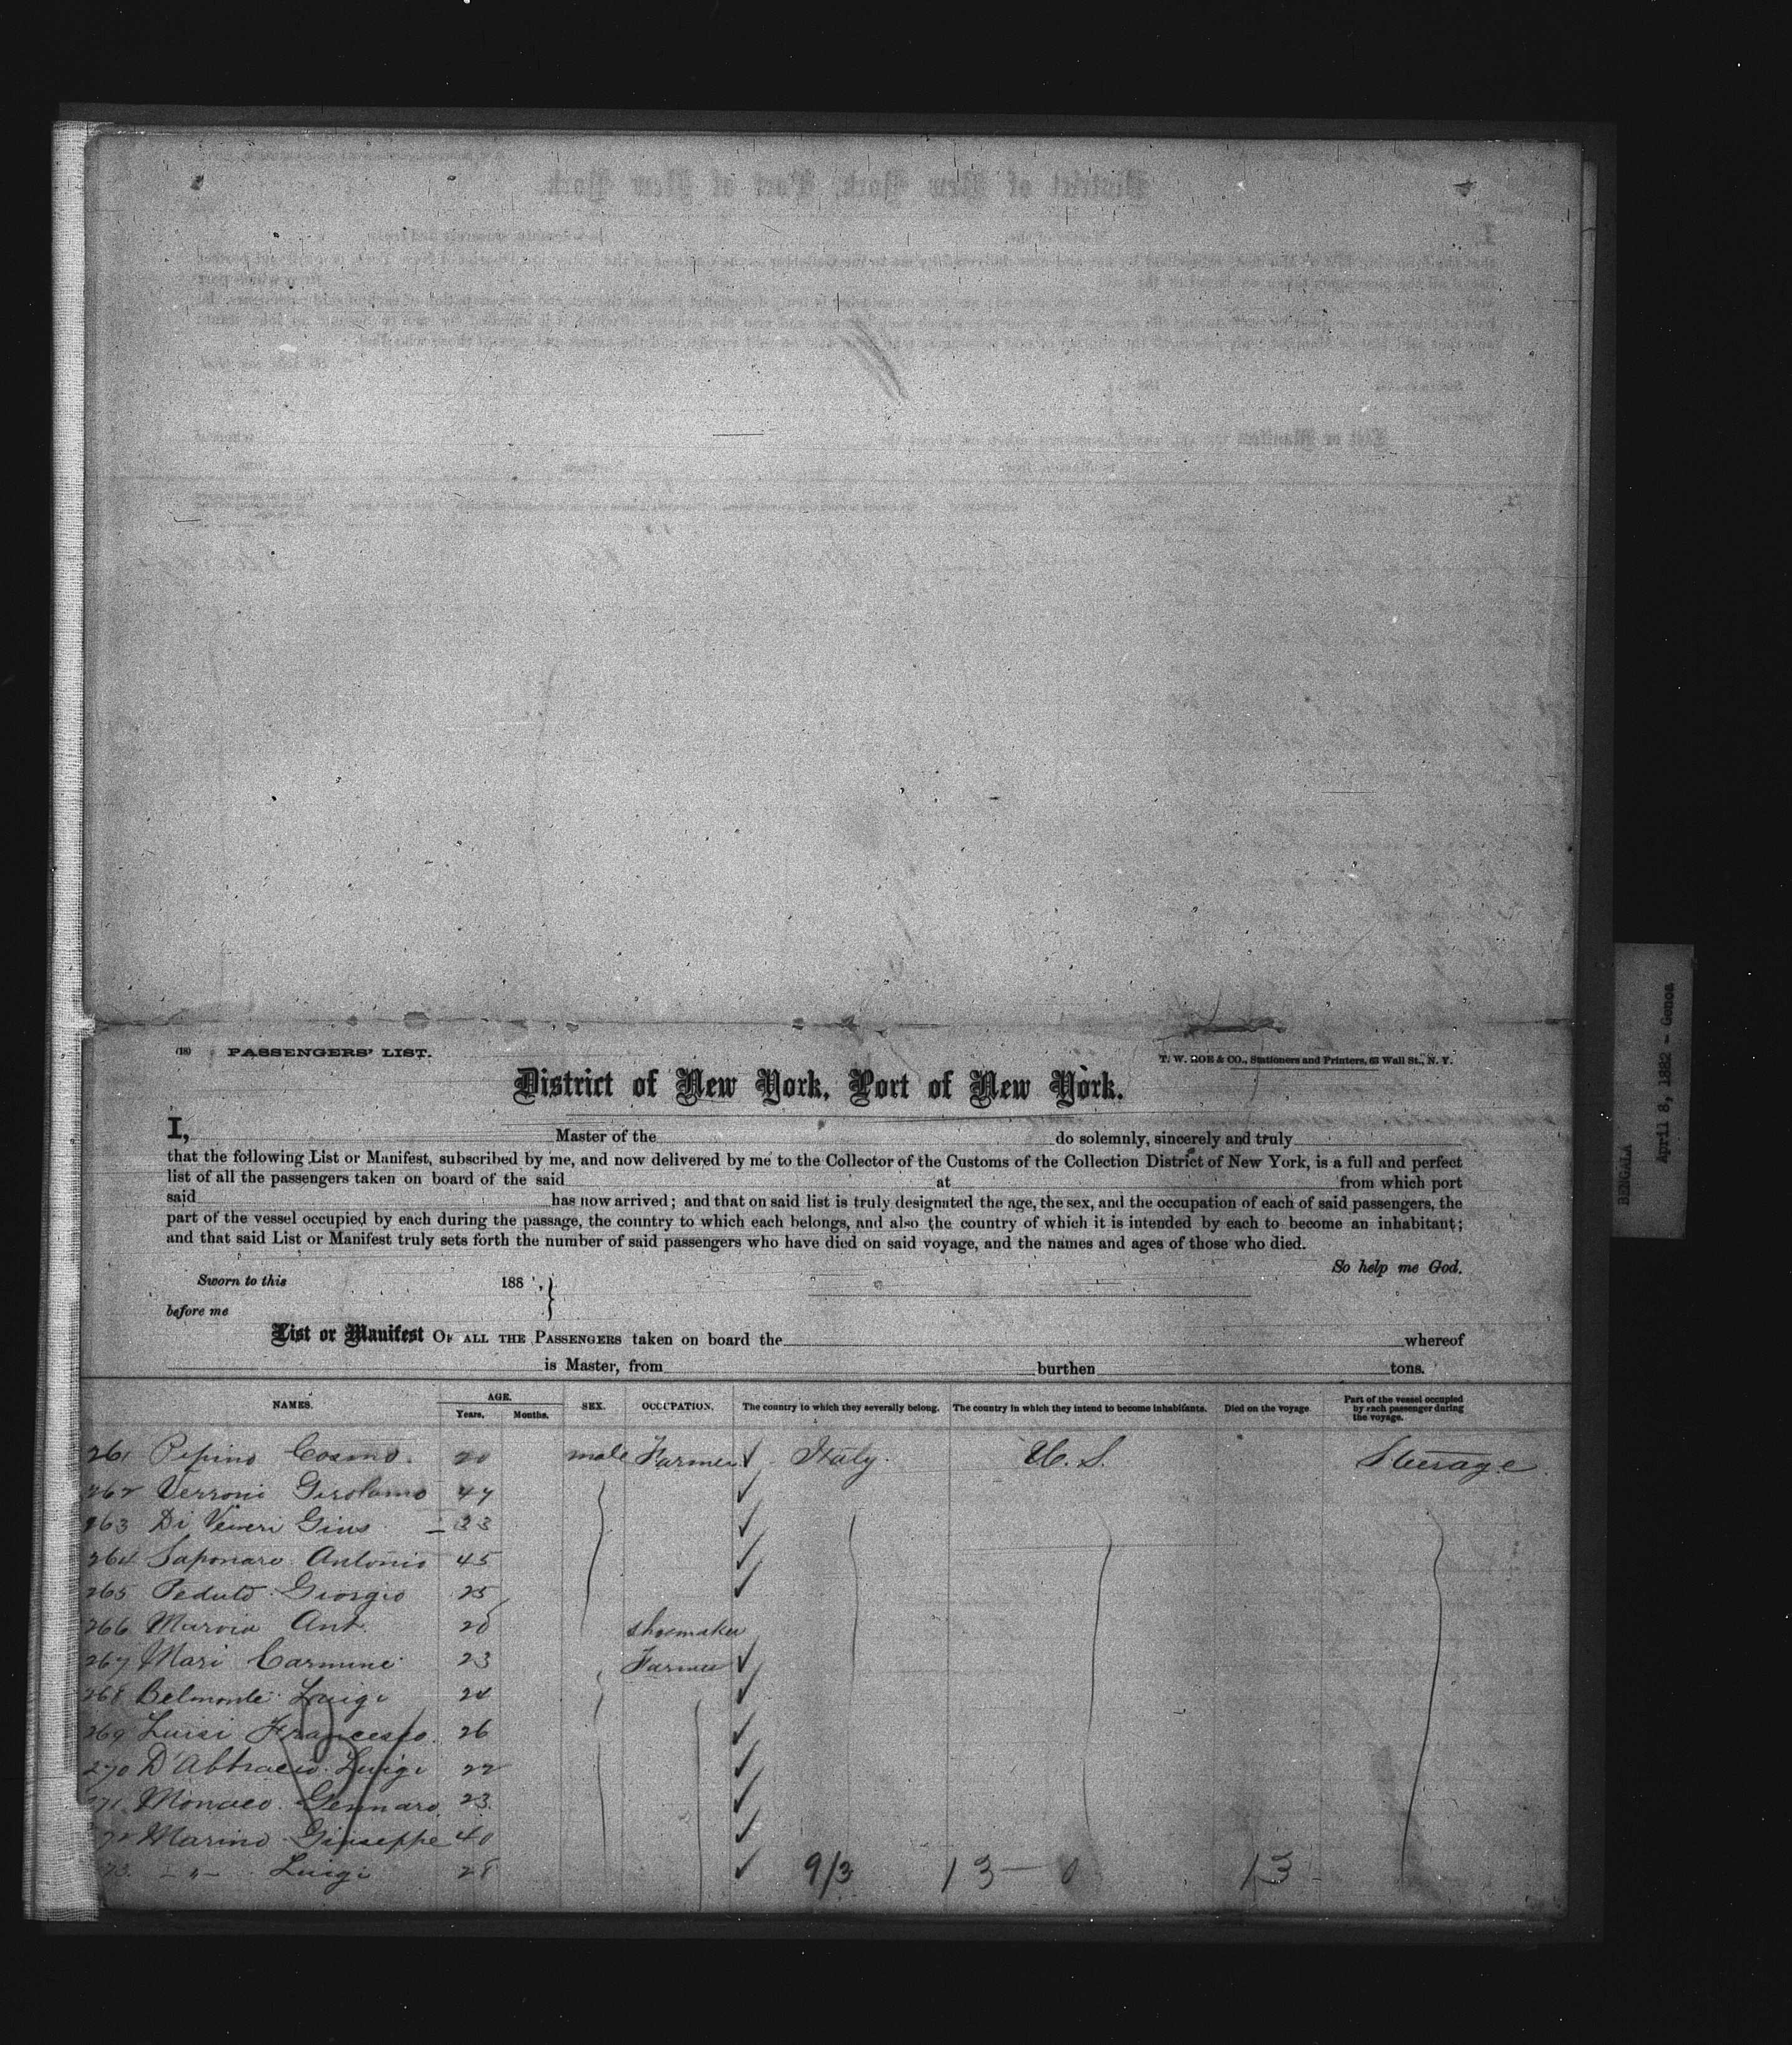 (18) PASSENGERS' LIST.
T. W. ROE & CO., Stationers and Printers, 63 Wall St., N. Y.
District of New York, Port of New York.
I, Master of the do solemnly, sincerely and truly
that the following List or Manifest, subscribed by me, and now delivered by me to the Collector of the Customs of the Collection District of New York, is a full and perfect
list of all the passengers taken on board of the said at from which port
said has now arrived; and that on said list is truly designated the age, the sex, and the occupation of each of said passengers, the
part of the vessel occupied by each during the passage, the country to which each belongs, and also the country of which it is intended by each to become an inhabitant;
and that said List or Manifest truly sets forth the number of said passengers who have died on said voyage, and the names and ages of those who died.
So help me God.
Sworn to this 188 , }
before me
List or Manifest OF ALL THE PASSENGERS taken on board the whereof
is Master, from burthen tons.
NAMES. AGE. Years. Months. SEX. OCCUPATION. The country to which they severally belong. The country in which they intend to become inhabitants. Died on the voyage. Part of the vessel occupied by each passenger during the voyage.
261 Pepino Cosmo. 20 male Farmer Italy. U. S. Steerage
262 Verroni Girolamo 44
263 Di Veneri Gius. 33
264 Saponaro Antonio 45
265 Peduto Giorgio 25
266 Ant. shoemaker
267 Mari Carmine 23 Farmer
268 Belmonte Luigi 24
269 Luisi Francesco. 26
270 Luigi 22
271 Monaco Gennaro 23
Marino Giuseppe 40
- " - Luigi 28 9/3 13 - 0 13 -
BENGALA
April 8, 1882 - Genoa